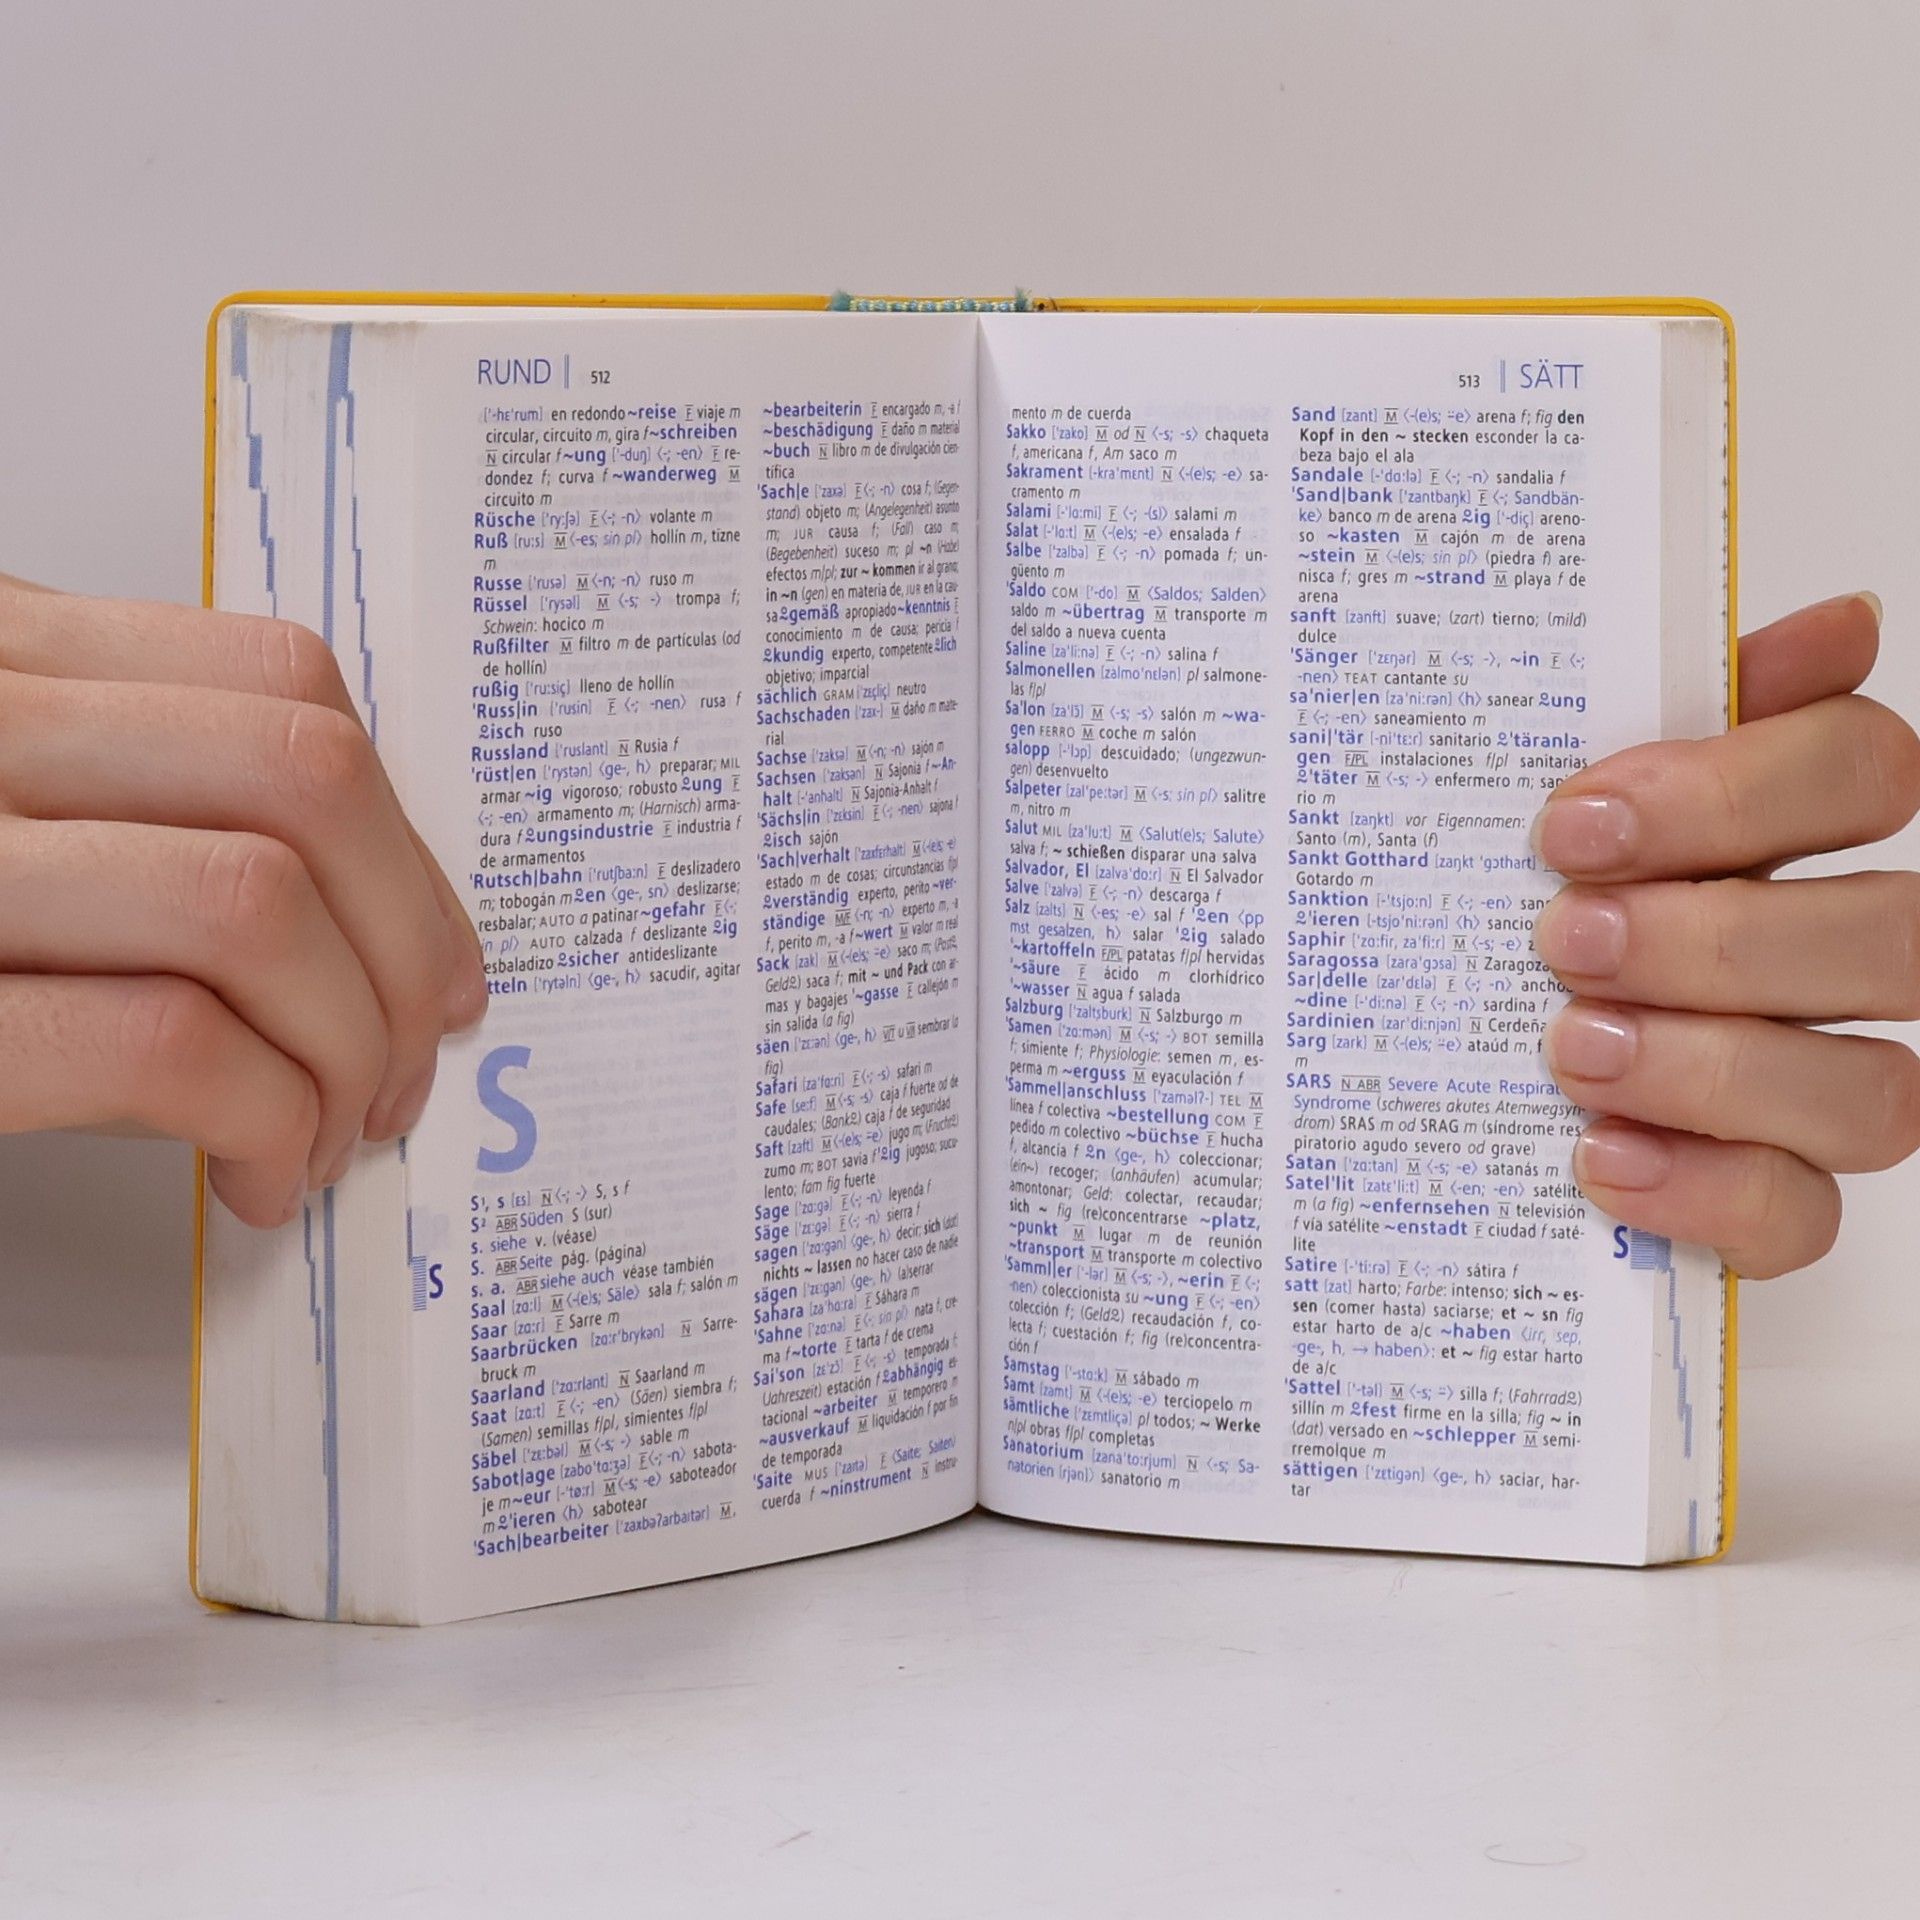 RUND 512
['-hɛ'rum] en redondo ~reise F viaje m
circular, circuito m, gira f ~schreiben
N circular f ~ung ['-duŋ] ⟨-; -en⟩ F re-
dondez f; curva f ~wanderweg M
circuito m
Rüsche ['ry:ʃə] F ⟨-; -n⟩ volante m
Ruß [ru:s] M ⟨-es; sin pl⟩ hollín m, tizne
m
Russe ['rusə] M ⟨-n; -n⟩ ruso m
Rüssel ['rysəl] M ⟨-s; -⟩ trompa f;
Schwein: hocico m
Rußfilter M filtro m de partículas (od
de hollín)
rußig ['ru:siç] lleno de hollín
'Russ|in ['rusin] F ⟨-; -nen⟩ rusa f
♀isch ruso
Russland ['ruslant] N Rusia f
'rüst|en ['rystən] ⟨ge-, h⟩ preparar; MIL
armar ~ig vigoroso; robusto ♀ung F
⟨-; -en⟩ armamento m; (Harnisch) arma-
dura f ♀ungsindustrie F industria f
de armamentos
'Rutsch|bahn ['rutʃba:n] F deslizadero
m; tobogán m ♀en ⟨ge-, sn⟩ deslizarse;
resbalar; AUTO a patinar ~gefahr F ⟨-;
in pl⟩ AUTO calzada f deslizante ♀ig
esbaladizo ♀sicher antideslizante
tteln ['rytəln] ⟨ge-, h⟩ sacudir, agitar
S
S¹, s [ɛs] N ⟨-; -⟩ S, s f
S² ABR Süden S (sur)
s. siehe v. (véase)
S. ABR Seite pág. (página)
s. a. ABR siehe auch véase también
Saal [zɑ:l] M ⟨-(e)s; Säle⟩ sala f; salón m
Saar [zɑ:r] F Sarre m
Saarbrücken [zɑ:r'brykən] N Sarre-
bruck m
Saarland ['zɑ:rlant] N Saarland m
Saat [zɑ:t] F ⟨-; -en⟩ (Säen) siembra f;
(Samen) semillas f/pl, simientes f/pl
Säbel ['zɛ:bəl] M ⟨-s; -⟩ sable m
Sabot|age [zabo'tɑ:ʒə] F ⟨-; -n⟩ sabota-
je m ~eur [-'tø:r] M ⟨-s; -e⟩ saboteador
m ♀'ieren ⟨h⟩ sabotear
'Sach|bearbeiter ['zaxbəʔarbaɪtər] M,
S
~bearbeiterin F encargado m, -a f
~beschädigung F daño m material
~buch N libro m de divulgación cien-
tífica
'Sach|e ['zaxə] F ⟨-; -n⟩ cosa f; (Gegen-
stand) objeto m; (Angelegenheit) asunto
m; JUR causa f; (Fall) caso m;
(Begebenheit) suceso m; pl ~n (Habe)
efectos m/pl; zur ~ kommen ir al grano;
in ~n (gen) en materia de, JUR en la cau-
sa ♀gemäß apropiado ~kenntnis F
conocimiento m de causa; pericia f
♀kundig experto, competente ♀lich
objetivo; imparcial
sächlich GRAM ['zɛçliç] neutro
Sachschaden ['zax-] M daño m mate-
rial
Sachse ['zaksə] M ⟨-n; -n⟩ sajón m
Sachsen ['zaksən] N Sajonia f ~-An-
halt [-'anhalt] N Sajonia-Anhalt f
'Sächs|in ['zɛksin] F ⟨-; -nen⟩ sajona f
♀isch sajón
'Sach|verhalt ['zaxfɛrhalt] M ⟨-(e)s; -e⟩
estado m de cosas; circunstancias f/pl
♀verständig experto, perito ~ver-
ständige M/F ⟨-n; -n⟩ experto m, -a
f, perito m, -a f ~wert M valor m real
Sack [zak] M ⟨-(e)s; ⸚e⟩ saco m; (Post♀,
Geld♀) saca f; mit ~ und Pack con ar-
mas y bagajes '~gasse F callejón m
sin salida (a fig)
säen ['zɛ:ən] ⟨ge-, h⟩ V/T u V/I sembrar (a
fig)
Safari [za'fɑ:ri] F ⟨-; -s⟩ safari m
Safe [se:f] M ⟨-s; -s⟩ caja f fuerte od de
caudales; (Bank♀) caja f de seguridad
Saft [zaft] M ⟨-(e)s; ⸚e⟩ jugo m; (Frucht♀)
zumo m; BOT savia f '♀ig jugoso; sucu-
lento; fam fig fuerte
Sage ['zɑ:gə] F ⟨-; -n⟩ leyenda f
Säge ['zɛ:gə] F ⟨-; -n⟩ sierra f
sagen ['zɑ:gən] ⟨ge-, h⟩ decir; sich (dat)
nichts ~ lassen no hacer caso de nadie
sägen ['zɛ:gən] ⟨ge-, h⟩ (a)serrar
Sahara [za'hɑ:ra] F Sáhara m
'Sahne ['zɑ:nə] F ⟨-; sin pl⟩ nata f, cre-
ma f ~torte F tarta f de crema
Sai'son [zɛ'zɔ̃] F ⟨-; -s⟩ temporada f;
(Jahreszeit) estación f ♀abhängig es-
tacional ~arbeiter M temporero m
~ausverkauf M liquidación f por fin
de temporada
'Saite MUS ['zaɪtə] F ⟨Saite; Saiten⟩
cuerda f ~ninstrument N instru-
513 SÄTT
mento m de cuerda
Sakko ['zako] M od N ⟨-s; -s⟩ chaqueta
f, americana f, Am saco m
Sakrament [-kra'mɛnt] N ⟨-(e)s; -e⟩ sa-
cramento m
Salami [-'lɑ:mi] F ⟨-; -(s)⟩ salami m
Salat [-'lɑ:t] M ⟨-(e)s; -e⟩ ensalada f
Salbe ['zalbə] F ⟨-; -n⟩ pomada f; un-
güento m
'Saldo COM ['-do] M ⟨Saldos; Salden⟩
saldo m ~übertrag M transporte m
del saldo a nueva cuenta
Saline [za'li:nə] F ⟨-; -n⟩ salina f
Salmonellen [zalmo'nɛlən] pl salmone-
las f/pl
Sa'lon [za'lɔ̃] M ⟨-s; -s⟩ salón m ~wa-
gen FERRO M coche m salón
salopp [-'lɔp] descuidado; (ungezwun-
gen) desenvuelto
Salpeter [zal'pe:tər] M ⟨-s; sin pl⟩ salitre
m, nitro m
Salut MIL [za'lu:t] M ⟨Salut(e)s; Salute⟩
salva f; ~ schießen disparar una salva
Salvador, El [zalva'do:r] N El Salvador
Salve ['zalvə] F ⟨-; -n⟩ descarga f
Salz [zalts] N ⟨-es; -e⟩ sal f '♀en ⟨pp
mst gesalzen, h⟩ salar '♀ig salado
'~kartoffeln F/PL patatas f/pl hervidas
'~säure F ácido m clorhídrico
'~wasser N agua f salada
Salzburg ['zaltsburk] N Salzburgo m
'Samen ['zɑ:mən] M ⟨-s; -⟩ BOT semilla
f; simiente f; Physiologie: semen m, es-
perma m ~erguss M eyaculación f
'Sammel|anschluss ['zaməlʔ-] TEL M
línea f colectiva ~bestellung COM F
pedido m colectivo ~büchse F hucha
f, alcancía f ♀n ⟨ge-, h⟩ coleccionar;
(ein~) recoger; (anhäufen) acumular;
amontonar; Geld: colectar, recaudar;
sich ~ fig (re)concentrarse ~platz,
~punkt M lugar m de reunión
~transport M transporte m colectivo
'Samml|er ['-lər] M ⟨-s; -⟩, ~erin F ⟨-;
-nen⟩ coleccionista su ~ung F ⟨-; -en⟩
colección f; (Geld♀) recaudación f, co-
lecta f; cuestación f; fig (re)concentra-
ción f
Samstag ['-stɑ:k] M sábado m
Samt [zamt] M ⟨-(e)s; -e⟩ terciopelo m
sämtliche ['zɛmtliçə] pl todos; ~ Werke
n/pl obras f/pl completas
Sanatorium [zana'to:rjum] N ⟨-s; Sa-
natorien [rjən]⟩ sanatorio m
Sand [zant] M ⟨-(e)s; ⸚e⟩ arena f; fig den
Kopf in den ~ stecken esconder la ca-
beza bajo el ala
Sandale [-'dɑ:lə] F ⟨-; -n⟩ sandalia f
'Sand|bank ['zantbaŋk] F ⟨-; Sandbän-
ke⟩ banco m de arena ♀ig ['-diç] areno-
so ~kasten M cajón m de arena
~stein M ⟨-(e)s; sin pl⟩ (piedra f) are-
nisca f; gres m ~strand M playa f de
arena
sanft [zanft] suave; (zart) tierno; (mild)
dulce
'Sänger ['zɛŋər] M ⟨-s; -⟩, ~in F ⟨-;
-nen⟩ TEAT cantante su
sa'nier|en [za'ni:rən] ⟨h⟩ sanear ♀ung
F ⟨-; -en⟩ saneamiento m
sani|'tär [-ni'tɛ:r] sanitario ♀'täranla-
gen F/PL instalaciones f/pl sanitarias
♀'täter M ⟨-s; -⟩ enfermero m; san
rio m
Sankt [zaŋkt] vor Eigennamen:
Santo (m), Santa (f)
Sankt Gotthard [zaŋkt 'gɔthart]
Gotardo m
Sanktion [-'tsjo:n] F ⟨-; -en⟩ san
♀'ieren [-tsjo'ni:rən] ⟨h⟩ sancio
Saphir ['zɑ:fir, za'fi:r] M ⟨-s; -e⟩ z
Saragossa [zara'gɔsa] N Zaragoza
Sar|delle [zar'dɛlə] F ⟨-; -n⟩ ancho
~dine [-'di:nə] F ⟨-; -n⟩ sardina f
Sardinien [zar'di:njən] N Cerdeña
Sarg [zark] M ⟨-(e)s; ⸚e⟩ ataúd m, f
m
SARS N ABR Severe Acute Respirat
Syndrome (schweres akutes Atemwegsyn-
drom) SRAS m od SRAG m (síndrome res
piratorio agudo severo od grave)
Satan ['zɑ:tan] M ⟨-s; -e⟩ satanás m
Satel'lit [zatɛ'li:t] M ⟨-en; -en⟩ satélite
m (a fig) ~enfernsehen N televisión
f vía satélite ~enstadt F ciudad f saté-
lite
Satire [-'ti:rə] F ⟨-; -n⟩ sátira f
satt [zat] harto; Farbe: intenso; sich ~ es-
sen (comer hasta) saciarse; et ~ sn fig
estar harto de a/c ~haben ⟨irr, sep,
-ge-, h, → haben⟩: et ~ fig estar harto
de a/c
'Sattel ['-təl] M ⟨-s; ⸚⟩ silla f; (Fahrrad♀)
sillín m ♀fest firme en la silla; fig ~ in
(dat) versado en ~schlepper M semi-
rremolque m
sättigen ['zɛtigən] ⟨ge-, h⟩ saciar, har-
tar
S